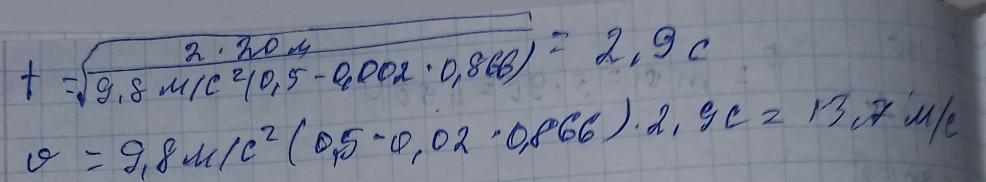 t = √(2 · 20 м / 9,8 м/с²(0,5 - 0,002 · 0,866)) = 2,9 с
v = 9,8 м/с² (0,5 - 0,02 · 0,866) · 2,9 с = 13,7 м/с